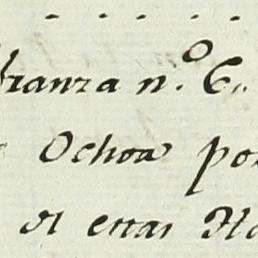 branza n.º 6..
Ochoa por
el estas Ha